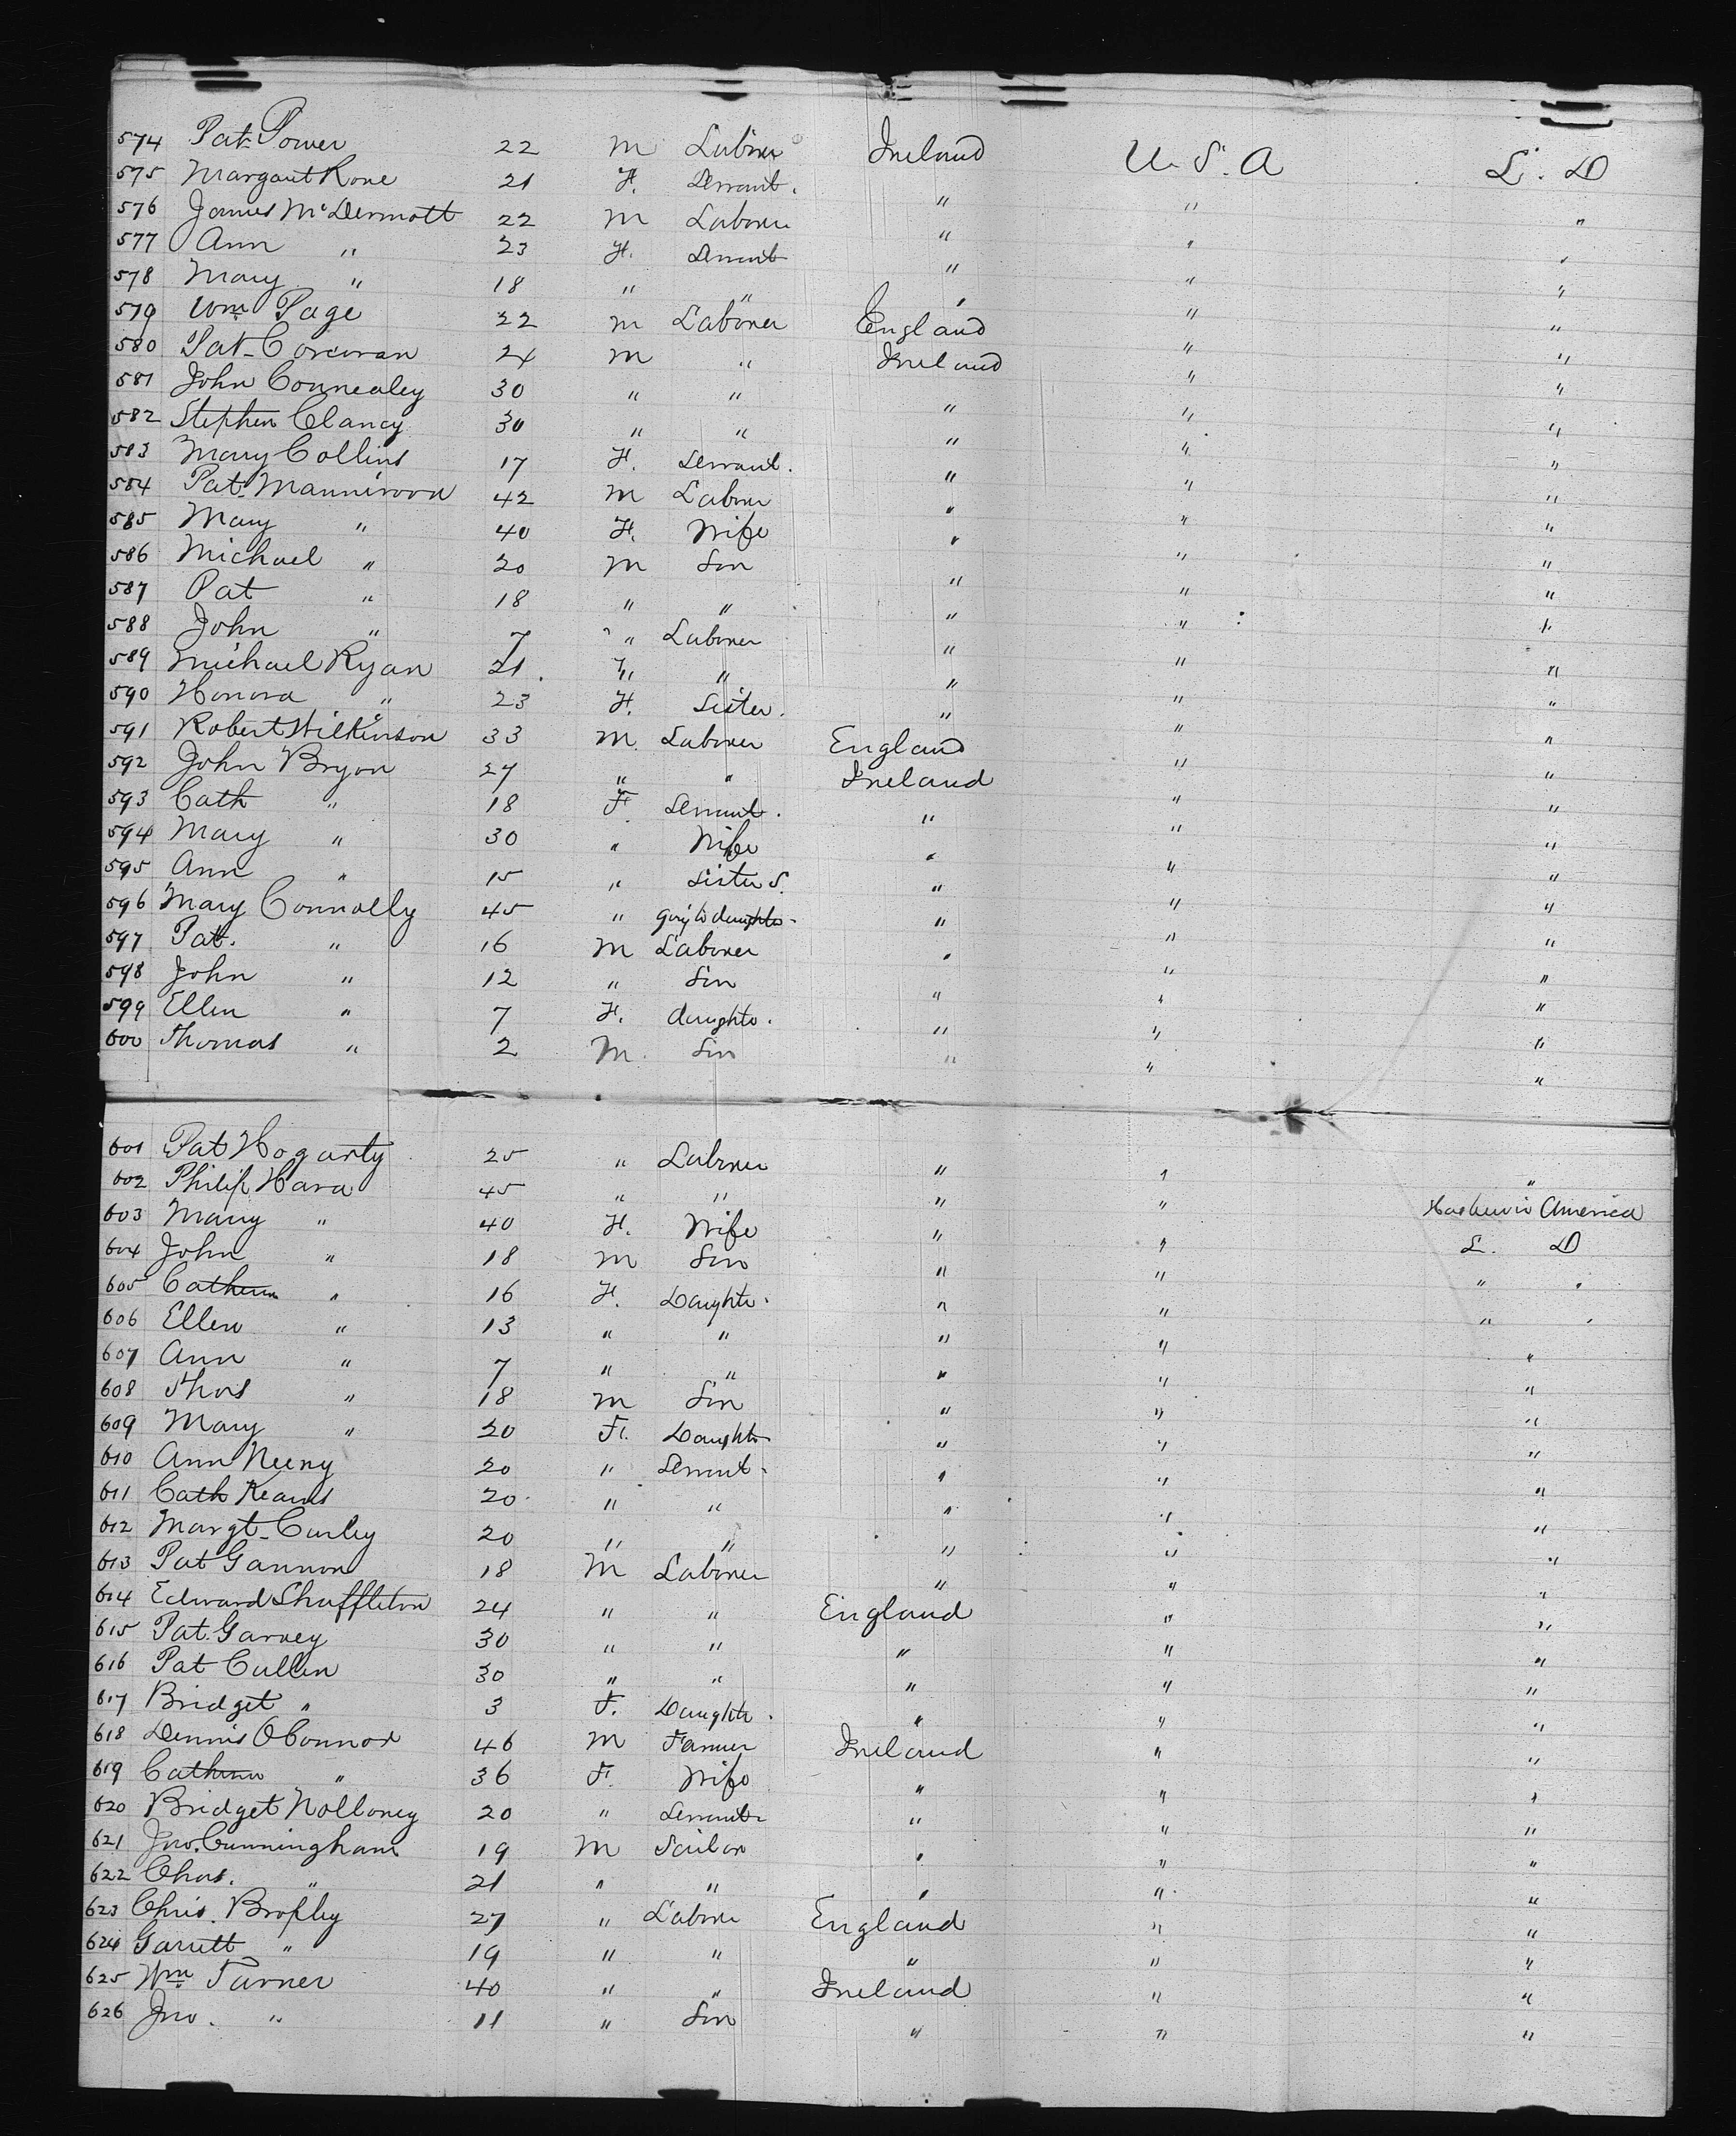 574 Pat Power 22 M Laborer Ireland U. S. A L. D
575 Margaret Rone 21 F. Servant. " " "
576 James McDermott 22 M Laborer " " "
577 Ann " 23 F. Servant " " "
578 Mary " 18 " " " " "
579 Wm Page 22 M Laborer England " "
580 Pat Corcoran 24 M " Ireland " "
581 John Connealey 30 " " " " "
582 Stephen Clancy 30 " " " " "
583 Mary Collins 17 F. Servant. " " "
584 Pat 42 M Laborer " " "
585 Mary " 40 F. Wife " " "
586 Michael " 20 M Son " " "
587 Pat " 18 " " " " "
588 John " 7 " Laborer " " "
589 Michael Ryan 21. " " " " "
590 Honora " 23 F. Sister. " " "
591 Robert Wilkinson 33 M Laborer England " "
592 John Bryan 27 " " Ireland " "
593 Cath " 18 F. Servant. " " "
594 Mary " 30 " Wife " " "
595 Ann " 15 " Sister S. " " "
596 Mary Connolly 45 " to daughter " " "
597 Pat. " 16 M Laborer " " "
598 John " 12 " Son " " "
599 Ellen " 7 F. daughter. " " "
600 Thomas " 2 M. Son " " "
601 Pat Hogarty 25 " Laborer " " "
602 Philip Hara 45 " " " " Has been in America
603 Mary " 40 F. Wife " " L. D
604 John " 18 M Son " " " "
605 Catherine " 16 F. Daughter. " " " "
606 Ellen " 13 " " " " "
607 Ann " 7 " " " " "
608 Thos " 18 M Son " " "
609 Mary " 20 F. Daughter " " "
610 Ann Neeny 20 " Servant. " " "
611 Cath Kearns 20 " " " " "
612 Margt Curley 20 " " " " "
613 Pat Gannon 18 M Laborer " " "
614 Edward Shuffleton 24 " " England " "
615 Pat. Garvey 30 " " " " "
616 Pat Cullen 30 " " " " "
617 Bridget " 3 F. Daughter. " " "
618 Dennis OConnor 46 M Farmer Ireland " "
619 Catherine " 36 F. Wife " " "
620 Bridget Nolloney 20 " Servant " " "
621 Jno. Cunningham 19 M Sailor " " "
622 Chas. " 21 " " " " "
623 Chris. Brophy 27 " Laborer England " "
624 Garrett " 19 " " " " "
625 Wm Turner 40 " " Ireland " "
626 Jno. " 11 " Son " " "